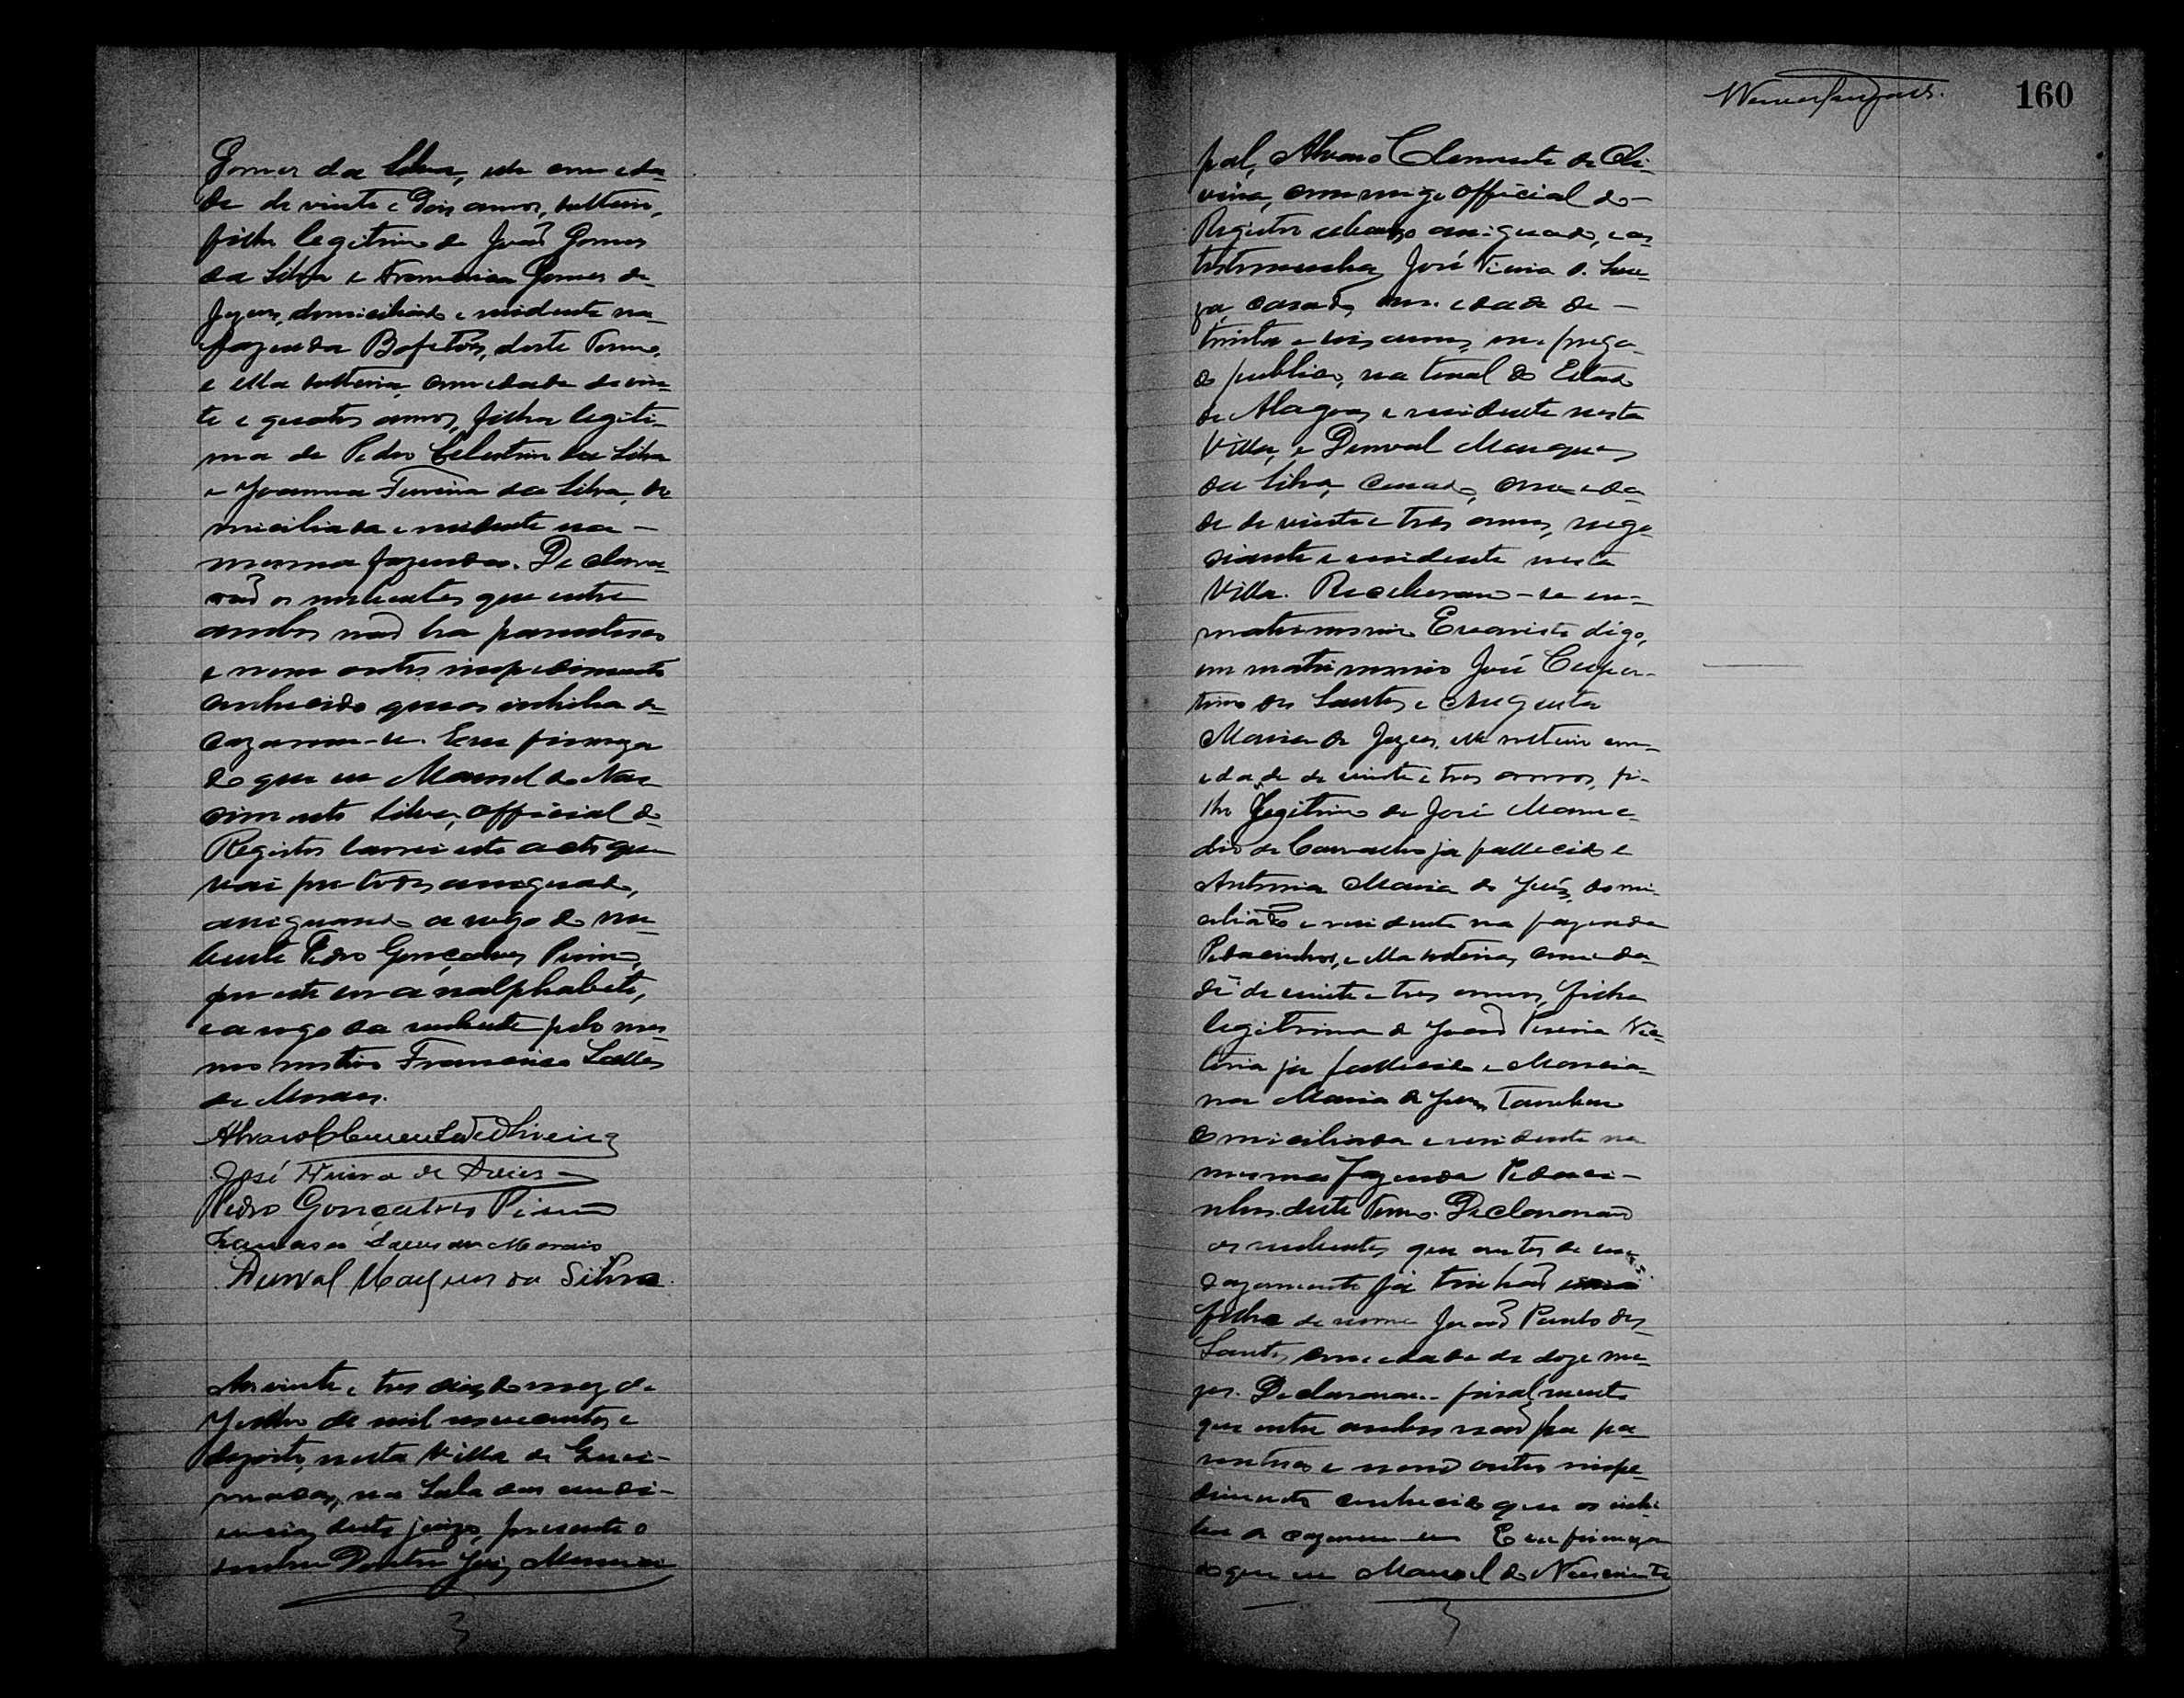 Gomes da Silva, elle com ida-
de de vinte e dois annos, solteiro,
filho legitimo de João Gomes
da Silva e Francisca Gomes de
Jezus, domiciliado e residente na
fazenda deste Termo,
e ella solteira, com idade de vin-
te e quatro annos, filha legiti-
ma de Pedro Celestino da Silva
e Joanna Ferreira da Silva, do
miciliada e residente na
mesma fazenda. Declara-
rão os nubentes que entre
ambos não ha parentesco
e nem outro impedimento
conhecido que os inhiba de
cazarem-se. Em firmeza
do que eu Manoel do Nas
cimento Silva, official do
Registro lavrei este acto que
vai por todos assignado,
assignando a rogo do nu-
bente Pedro Gonçalves
por este ser analphabeto,
e a rogo da nubente pelo mes
mo motivo Francisco Salles
de Moraes.
Alvaro Clemente de Oliveira
José Vieira de
Pedro Gonçalves
Francisco Salles de Moraes
Durval Marques da Silva
Aos vinte e tres dias do mez de
Julho de mil novecentos e
dezoito, nesta Villa de
na Sala das audi-
encias deste juizo, presente o
senhor Doutor Juiz Munici
160
pal, Alvaro Clemente de Oli-
veira, commigo official do
Registro abaixo assignado, e as
testemunhas José Vieira de
casado, com idade de
trinta e annos, emprega-
do publico, natural do Estado
de Alagoas e residente nesta
Villa, e Durval Marques
da Silva, casado, com ida-
de de vinte e tres annos, nego-
ciante e residente nesta
Villa. Receberam-se em
matrimonio Evaristo digo,
em matrimonio José Cuper-
tino dos Santos e Augusta
Maria de Jezus, elle solteiro com
idade de vinte e tres annos, fi-
lho legitimo de José Mame-
dio de Carvalho já fallecido e
Antonia Maria de Jesus, domi-
ciliado e residente na fazenda
Pedacinhos, e ella solteira, com ida-
de de vinte e tres annos, filha
legitima de João Pereira Vic-
toria já fallecido e Marcia-
na Maria de Jesus, tambem
domiciliada e residente na
mesma fazenda Pedaci-
nhos deste Termo. Declararão
os nubentes que antes de seu
cazamento já tinhão
filho de nome João Paulo dos
Santos com idade de doze me-
zes. Declararam finalmente
que entre ambos não ha pa
rentesco e nem outro impe-
dimento conhecido que os inhi-
ba de cazarem-se. Em firmeza
do que eu Manoel do Nascimento